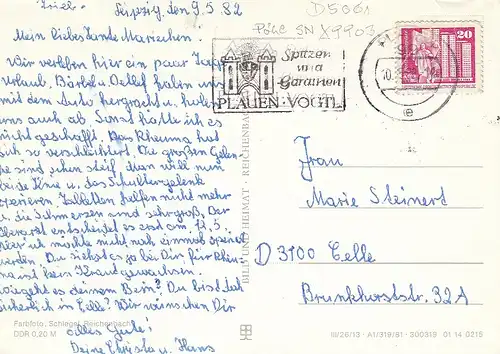 Leipzig den 9.5.82
D5001
SN X9903
Mein liebes Tante Mariechen.
Wir verleben hier ein paar Tage
Urlaub. Bärbel u. Detlef haben uns
mit dem Auto hergebracht u. holen
uns auch ab. Sonst hätte ich es
nicht geschafft. Das Rheuma hat
sich so verschlechtert. Die großen Gelen-
ke sind schon steif. Man will nun
beide Knie u. das Schultergelenk
operieren. Tabletten helfen nicht mehr
u. die Schmerzen sind sehr groß. Der
Oberarzt entscheidet es erst am 17.5.
Aber ich möchte nicht noch einmal operiert
werden. Du siehst es ja bei Dir für Rheu-
ma ist kein Kraut gewachsen.
Wie geht es Deinem Bein? Du bist doch
sicherlich in Celle? Wir wünschen Dir
alles Gute!
Deine Christa u. Hans
Spitzen
und
Gardinen
PLAUEN · VOGTL
20
e
BILD UND HEIMAT · REICHENBACH
Frau
Marie Steinert
D 3100 Celle
Brunkhorststr. 32A
Farbfoto: Schlegel, Reichenbach
DDR 0,20 M
III/26/13 · A1/319/81 · 300319 01 14 0215